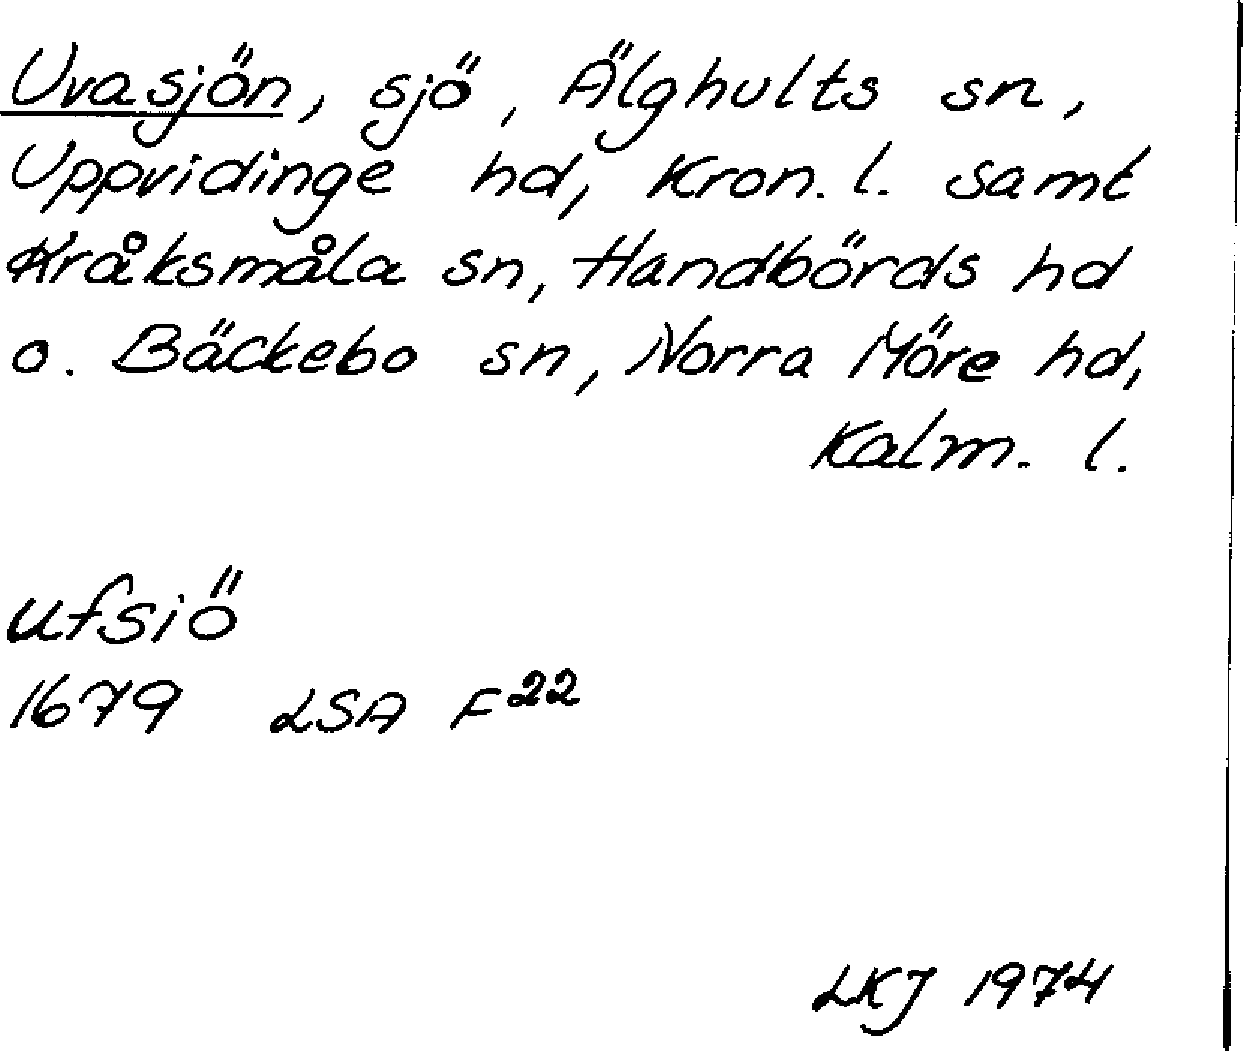 Uvasjön, sjö, Älghults sn,
Uppvidinge hd, Kron. l. samt
Kråksmåla sn, Handbörds hd
o. Bäckebo sn, Norra Möre hd,
Kalm. l.
ufsiö
1679 LSA F22
LKJ 1974